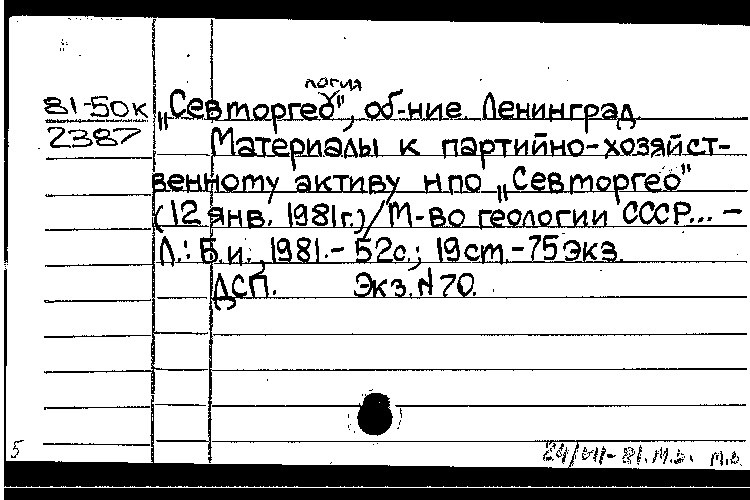 логия
81-50к „Севморгео", об-ние. Ленинград.
2387 Материалы к партийно-хозяйст-
венному активу НПО „Севморгео"
(12 янв. 1981г.)/М-во геологии СССР... –
Л.: Б.и., 1981.– 52с.; 19см.–75экз.
ДСП. Экз. N 70.
5 24/VII-81. М.Б. М.Б.